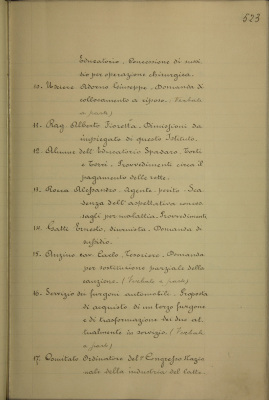 523
Educatorio. Concessione di sussi-
dio per operazione chirurgica.
10. Usciere Adorno Giuseppe. Domanda di
collocamento a riposo. (Verbale
a parte)
11. Rag. Alberto Fioretta. Dimissioni da
impiegato di questo Istituto.
12. Alunne dell'Educatorio Spadaro, Torti
e Torri. Provvedimenti circa il
pagamento delle rette.
13. Rocca Alessandro. Agente perito. Sca-
denza dell'aspettativa conces-
sagli per malattia. Provvedimenti
14. Gatti Ernesto, diurnista. Domanda di
sussidio.
15. Anzino cav. Carlo, Tesoriere. Domanda
per sostituzione parziale della
cauzione. (Verbale a parte)
16. Servizio dei furgoni automobile. Proposta
di acquisto di un terzo furgone
e di trasformazione dei due at-
tualmente in servizio. (Verbale
a parte)
17. Comitato Ordinatore del 1° Congresso Nazio-
nale della industria del latte.